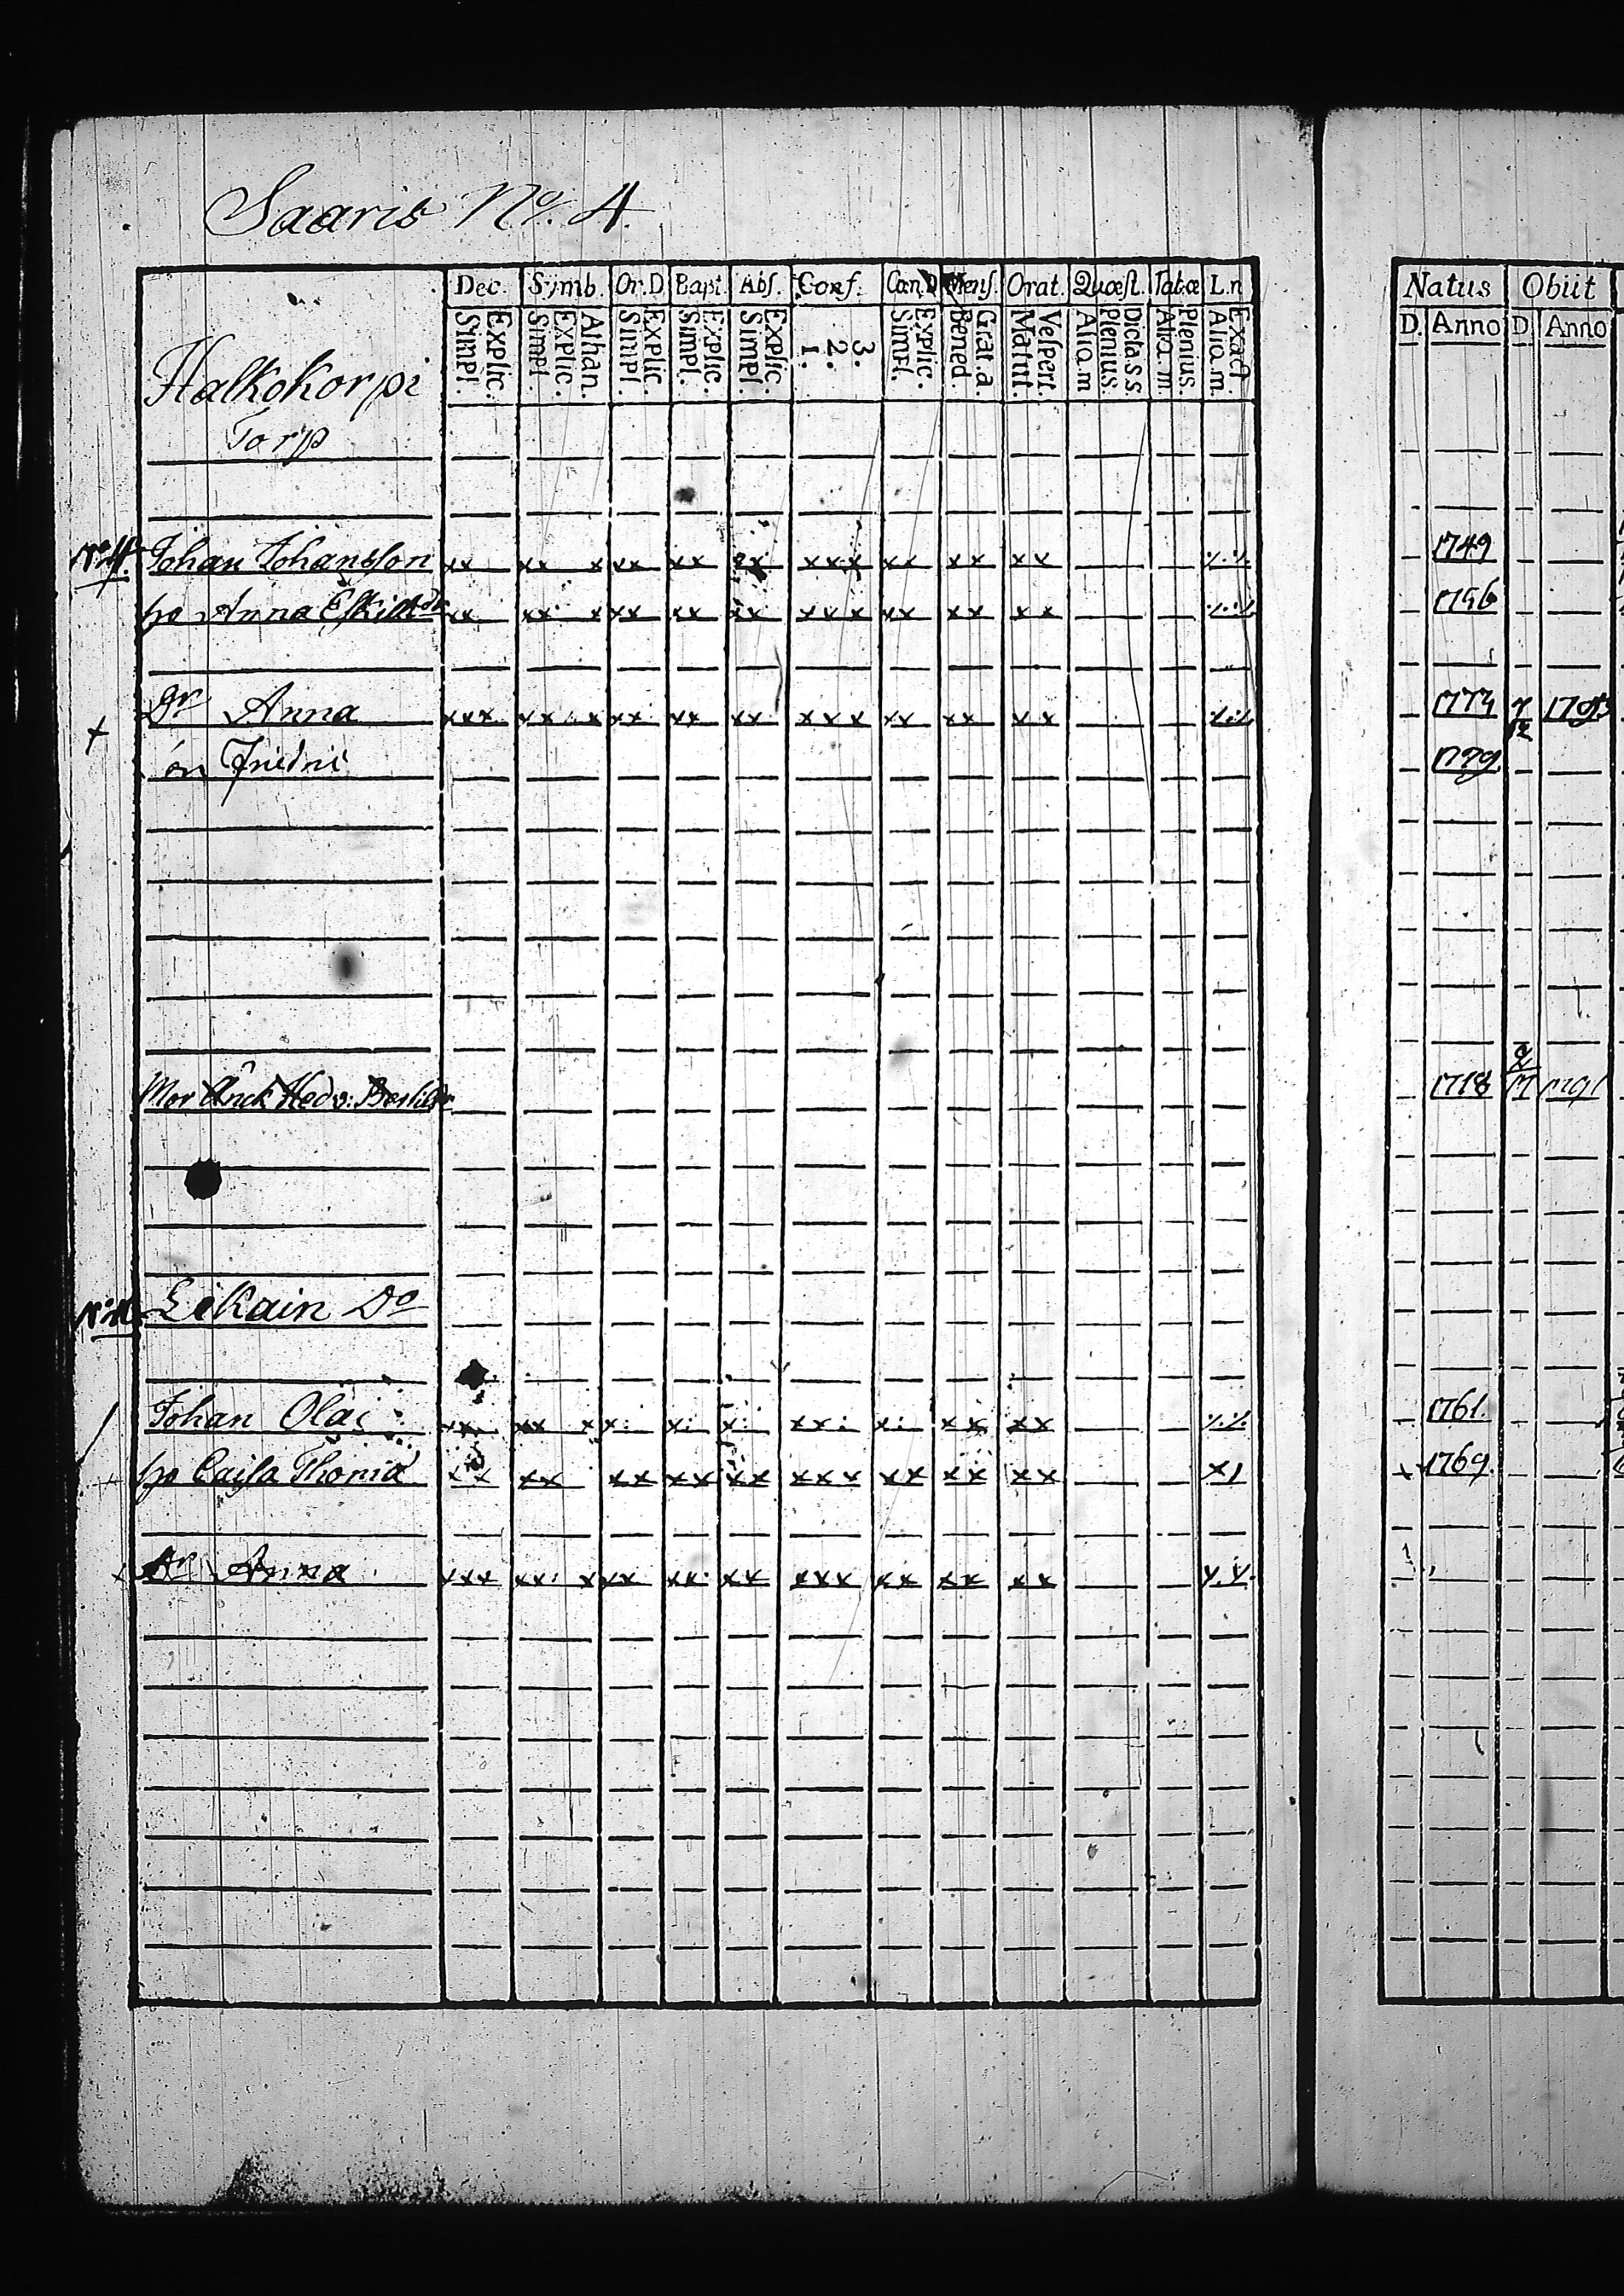 Saaris No. 4.
Dec. Symb. Or.D. Bapt. Abs. Conf. Can.D Mens. Orat. Quæst. Tab.œ L.n Natus Obiit
Explic. Simpl. Athan. Explic. Simpl. Explic. Simpl. Explic. Simpl. Explic. Simpl. 3. 2. 1. Explic. Simpl. Grat.a Bened. Vespert. Matut. Dicta.s.s Plenius Aliq.m Plenius. Aliq.m Exact Aliq.m. D. Anno D. Anno
Halkokorpi
Torp
No 4. Johan Johansson xx xx x xx xx xx xxx xx xx xx 1749
ho Anna Eskilsdr xx xx x xx xx xx xxx xx xx xx 1756
+ Dr Anna xxx xx x xx xx xx xxx xx xx xx 1773 1795
on Fridric 1779
Mor Hedv: 1718 17 1791
Eikain Do
Johan Olai xx xx x x: x: x: xx: x: xx xx 1761.
ho Caisa Thoma xx xx xx xx xx xxx xx xx xx x/ 1769.
Dr Anna xxx xx: x xx xx: xx xxx xx xx xx